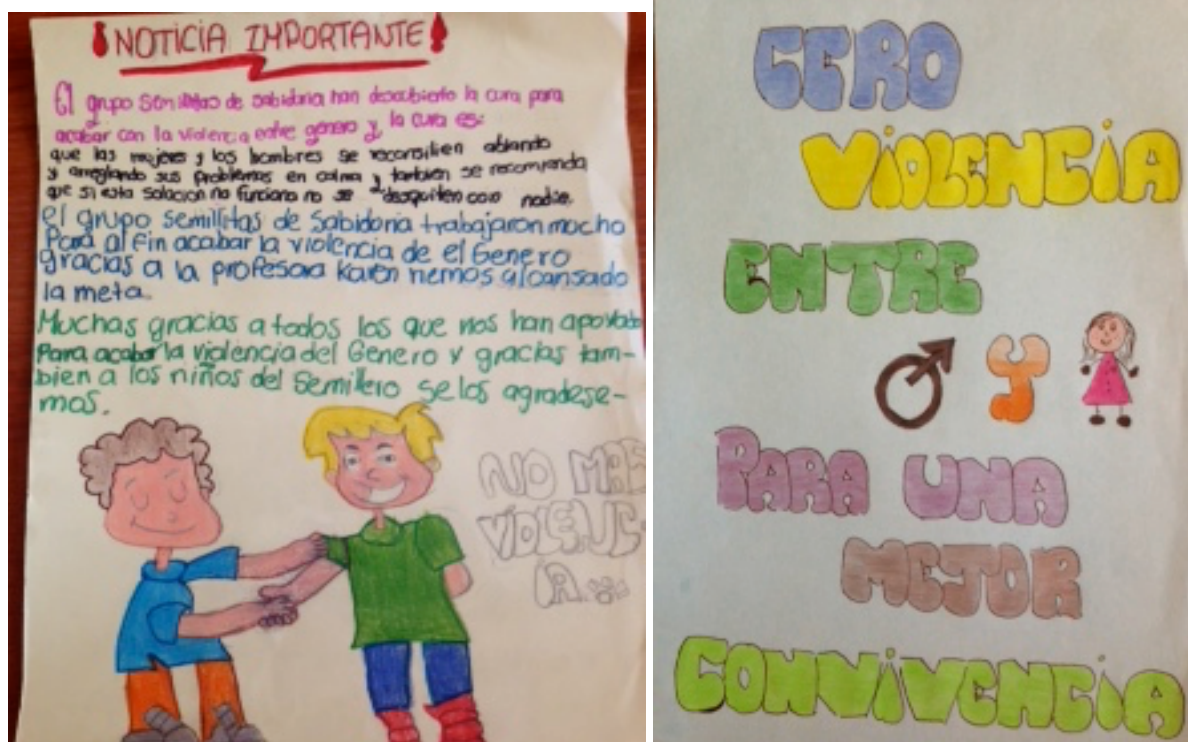 ¡NOTICIA IMPORTANTE!
El grupo Semillitas de sabiduria han descubierto la cura para
acabar con la violencia entre género y la cura es:
que las mujeres y los hombres se reconsilien ablando
y arreglando sus problemas en calma y tambien se recomienda
que si esta solacion no funciona no se desquiten con nadie.
El grupo semillitas de Sabiduria trabajaron mucho
Para al fin acabar la violencia de el Genero
gracias a la profesora karen hemos alcansado
la meta.
Muchas gracias a todos los que nos han apoyado
Para acabar la violencia del Genero y gracias tam-
bien a los niños del Semillero se los agradese-
mos.
NO MAS
VIOLENC-
IA
CERO
VIOLENCIA
ENTRE
Y
PARA UNA
MEJOR
CONVIVENCIA